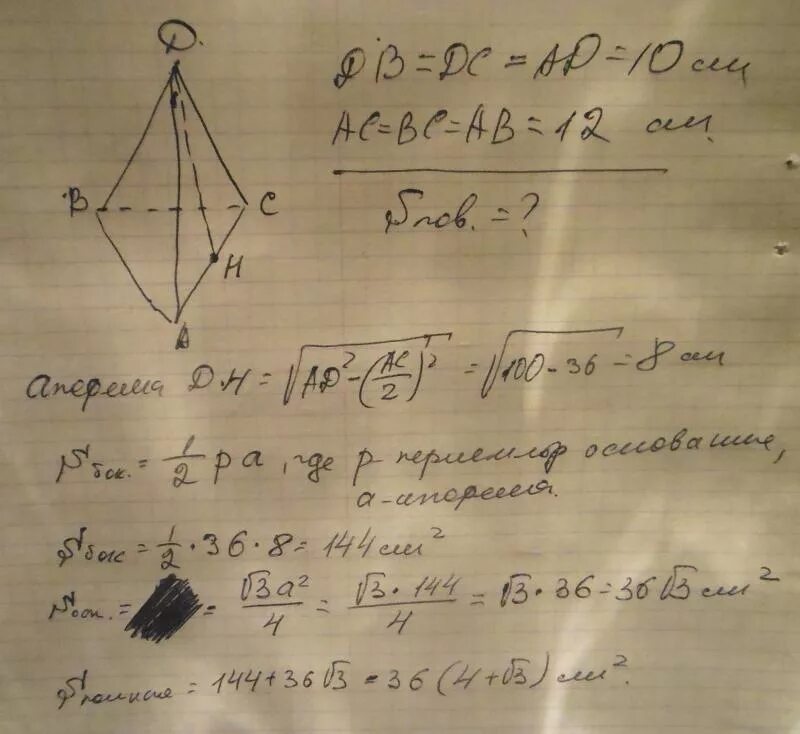 D.
DB = DC = AD = 10 см
AC = BC = AB = 12 см.
B
C
Sпов. = ?
H
A
апофема DH = √(AD² - (AC/2)²) = √(100 - 36) = 8 см
Sбок. = 1/2 p a, где p периметр основание,
a - апофема.
Sбок = 1/2 · 36 · 8 = 144 см²
Sосн. = = √3a²/4 = √3 · 144/4 = √3 · 36 = 36√3 см²
Sполное = 144 + 36√3 = 36(4 + √3) см².